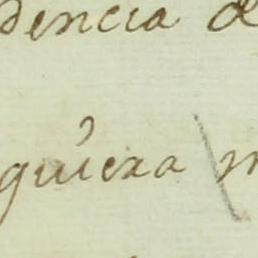 dencia d
quiera m